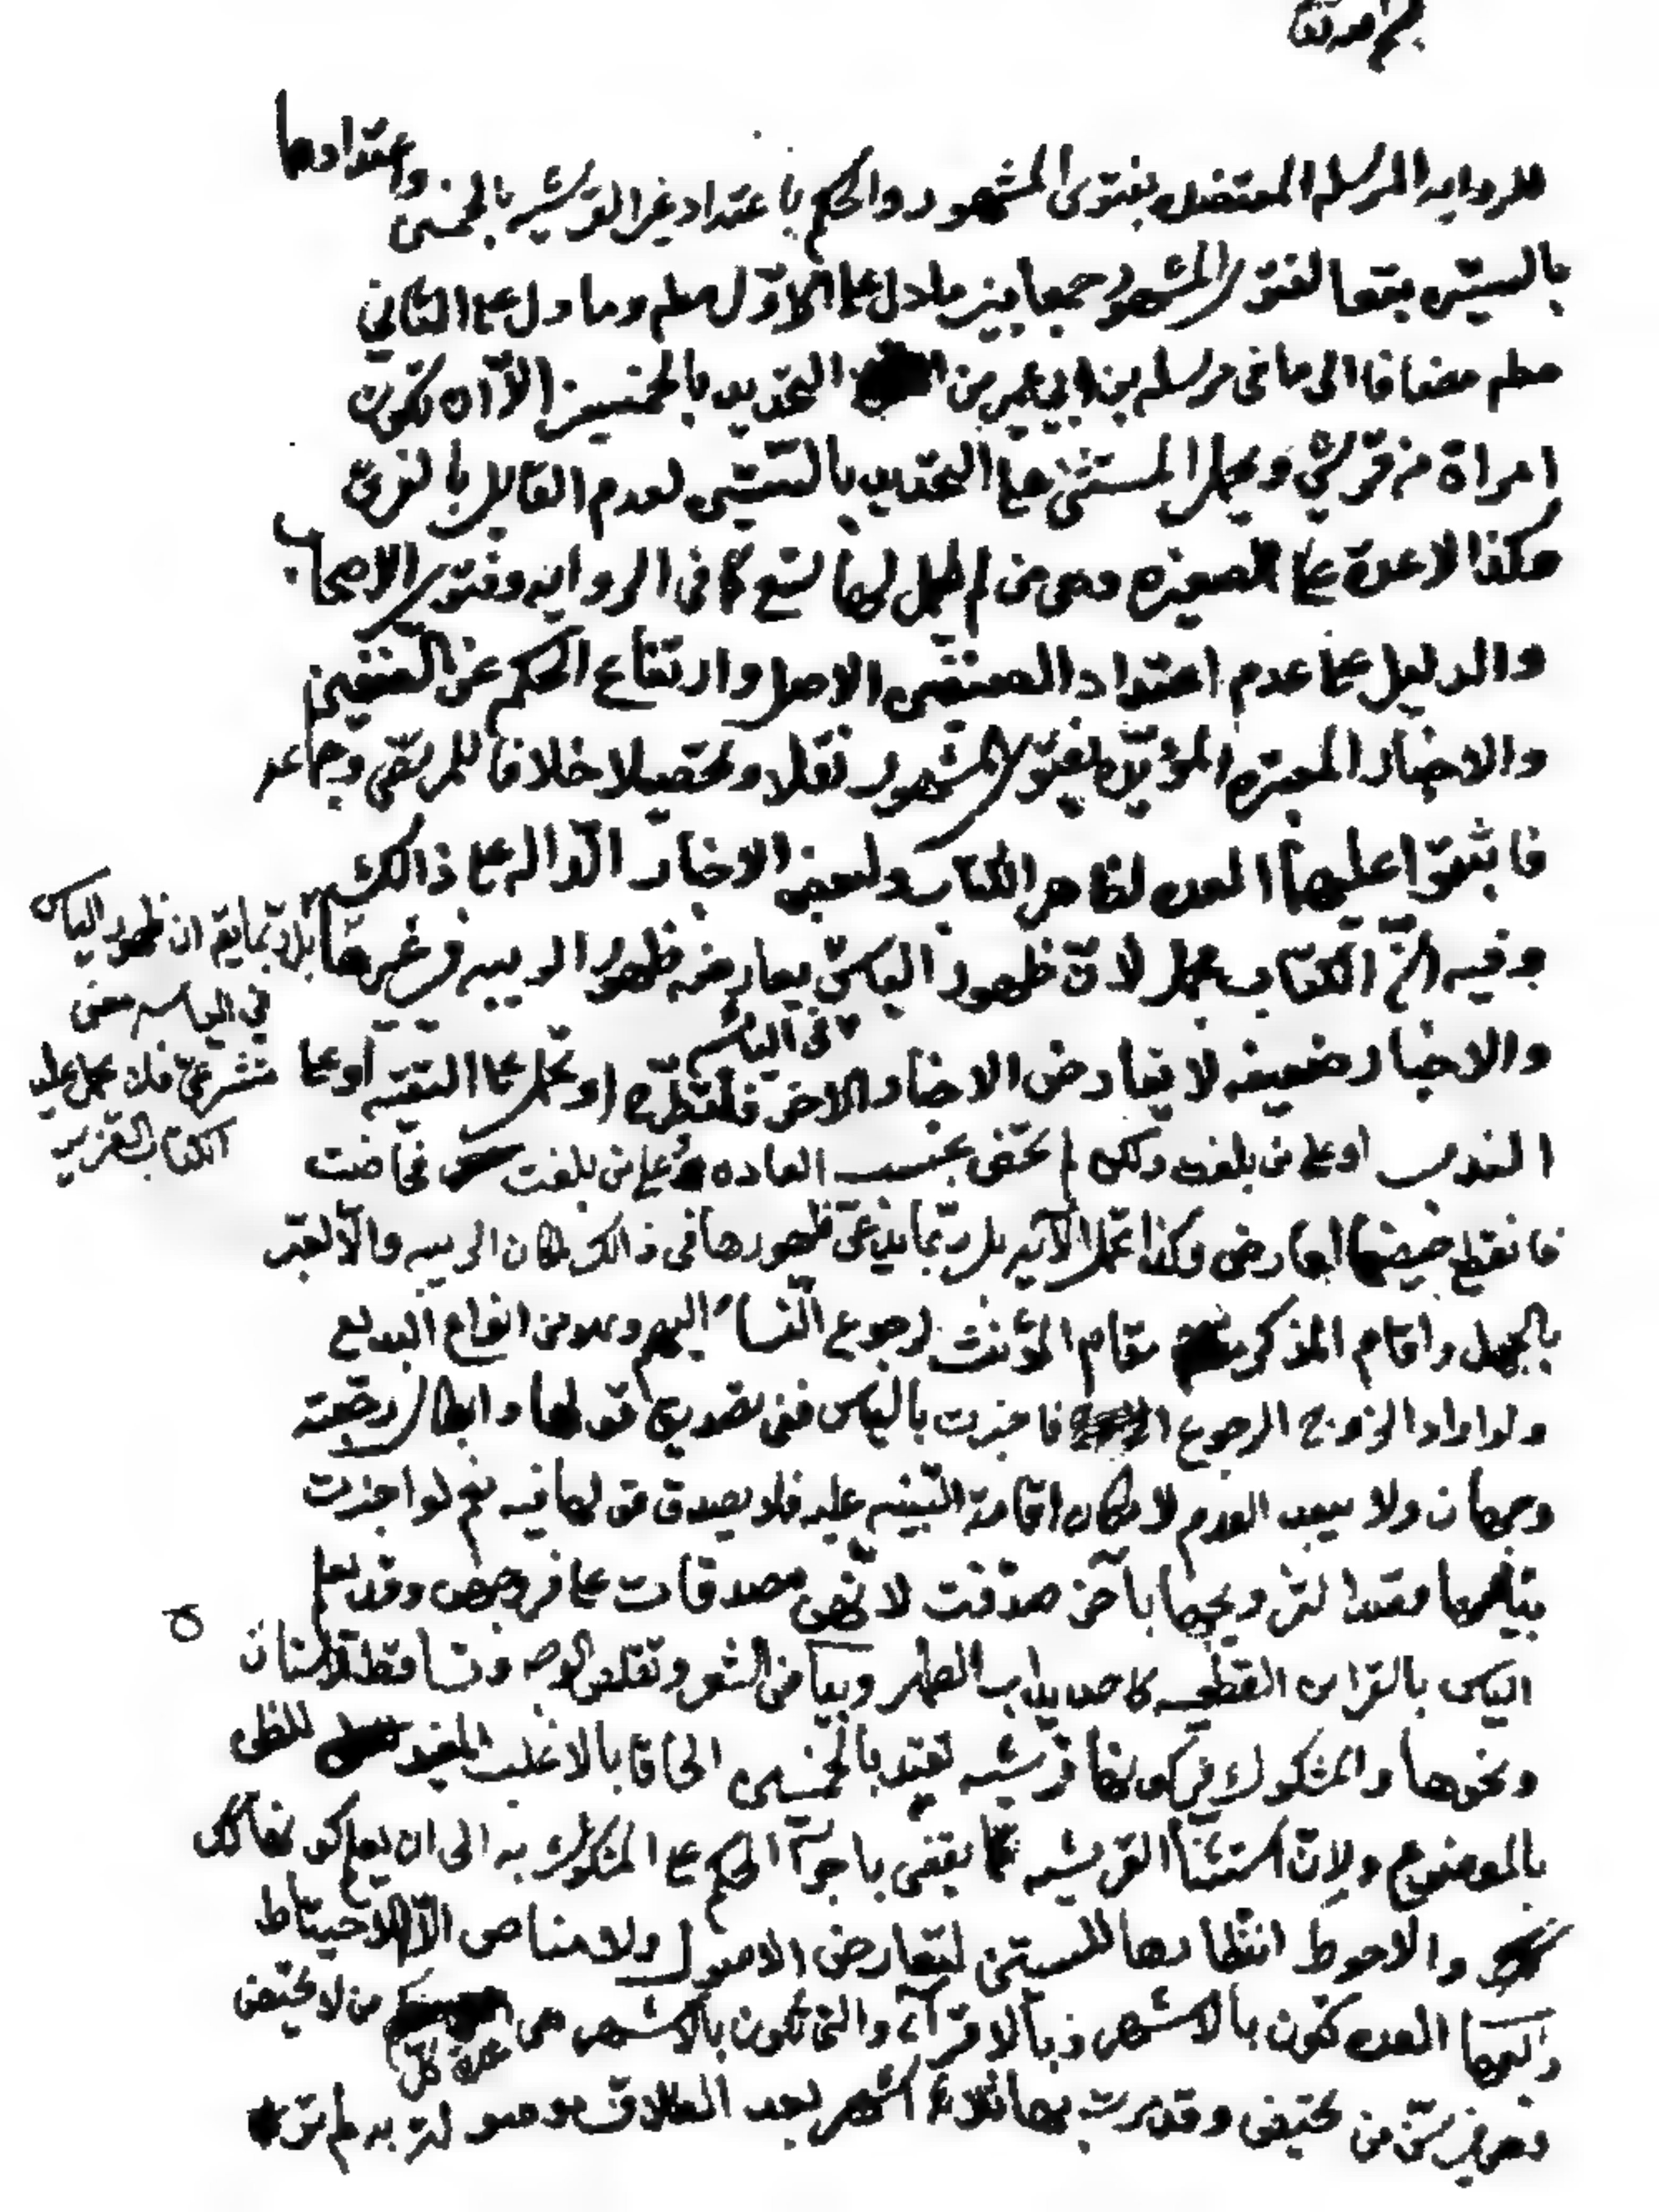 للرواية المرسلة المعتضدة بفتوى المشهور والحكم باعتداد غير القرشية بالخمسين واعتدادها
بالستين تبعا لفتوى المشهور جمعا بين ما دل على الاول مط وما دل على الثاني
مط مضافا الى ما في مرسلة بن ابي عمير من التحديد بالخمسين الا ان تكون
امراة من قريش ويحمل المستثنى على التحديد بالستين لعدم القايل بالفرق
وكذا لا عدة على الصغيرة وهي من لم يكمل لها تسع كما في الرواية وفتوى الاصحاب
والدليل على عدم اعتداد الصنفين الاصل وارتفاع الحكم عن الصنفين
والاخبار المعتبرة المؤيدة بفتوى المشهور نقلا وتحصيلا خلافا للمرتضى وجماعة
فاثبتوا عليهما العدة لظاهر الكتاب ولبعض الاخبار الدالة على ذالك
وفيه ان الكتاب مجمل لان ظهور الياس يعارضه ظهور الريبة في غيرها
بل ربما يقم ان ظهور الياس
في الياسه معنى
متشرعي فلا يحمل عليه
الكتاب العزيز
في اليائسه
والاخبار ضعيفه لا تعارض الاخبار الاخر فلتطرح او تحمل على التقية او على
الندب او على من بلغت ولكن لم تحض بحسب العاده او على من بلغت فحاضت
فانقطع حيضها لعارض وكذا تحمل الآية بل ربما يدعى ظهورها في ذالك لمكان الريبه والا لعبر
بالجهل واقام المذكر مقام المؤنث لرجوع النساء اليهم وهو من انواع البديع
ولو اراد الزوج الرجوع فاخبرت بالياس ففي تصديق قولها وابطال رجعته
وجهان ولا يبعد العدم لامكان اقامة البينه عليه فلا يصدق قولها فيه نعم لو اخبرت
بياسها مقدما لتزويجها بآخر صدقت لانهن مصدقات على فروجهن وقد يعلم
الياس بالقراين القطعيه كاحديداب الظهر وبياض الشعر وتقلص الوجه وتساقط الاسنان
ونحوها والمشكوك في كونها قرشيه تعتد بالخمسين الحاقا بالاغلب المفيد للظن
بالموضوع ولان استثناء القرشيه مما يقضى باجراء الحكم على المشكوك به الى ان يعلم كونها كك
والاحوط انتظارها للستين لتعارض الاصول ولا مناص الا الاحتياط
العدة تكون بالاشهر وبالاقراء والتي تكون بالاشهر هي عدة كل من لا تحيض
وهي في سن من تحيض وقدرت بها ثلاثة اشهر بعد الطلاق